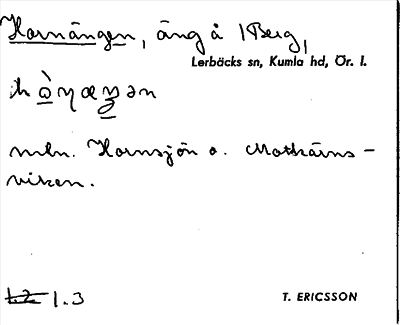 Hornängen, äng å Berg,
Lerbäcks sn, Kumla hd, Ör. l.
mln. Hornsjön o. Motkärns-
viken.
1.3
T. ERICSSON